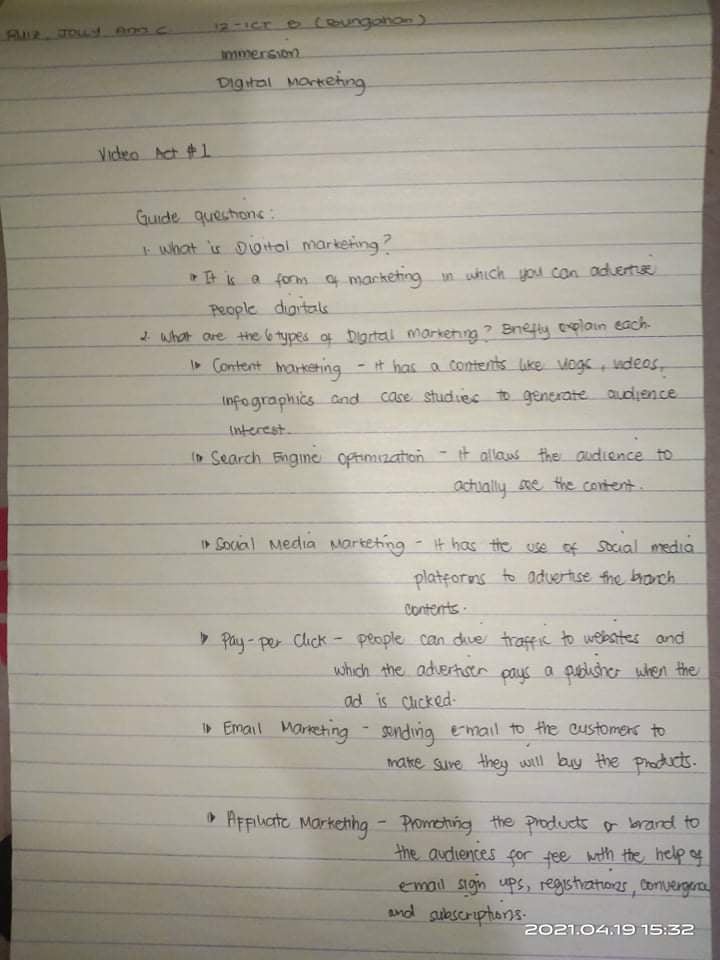 Ruiz, Jolly Ann C. 12-ICT B (Dungahan)
Immersion
Digital Marketing
Video Act #1
Guide questions:
1. What is Digital marketing?
It is a form of marketing in which you can advertise
People digitals
2. What are the 6 types of Digital marketing? Briefly explain each.
Content marketing - it has a contents like vlogs, videos,
infographics and case studies to generate audience
interest.
Search Engine Optimization - it allows the audience to
actually see the content.
Social Media Marketing - it has the use of social media
platforms to advertise the branch
contents.
Pay-per Click - people can drive traffic to websites and
which the advertiser pays a publisher when the
ad is clicked.
Email Marketing - sending e-mail to the customers to
make sure they will buy the products.
Affiliate Marketing - Promoting the products or brand to
the audiences for fee with the help of
e-mail sign ups, registrations,
and subscriptions.
2021.04.19 15:32